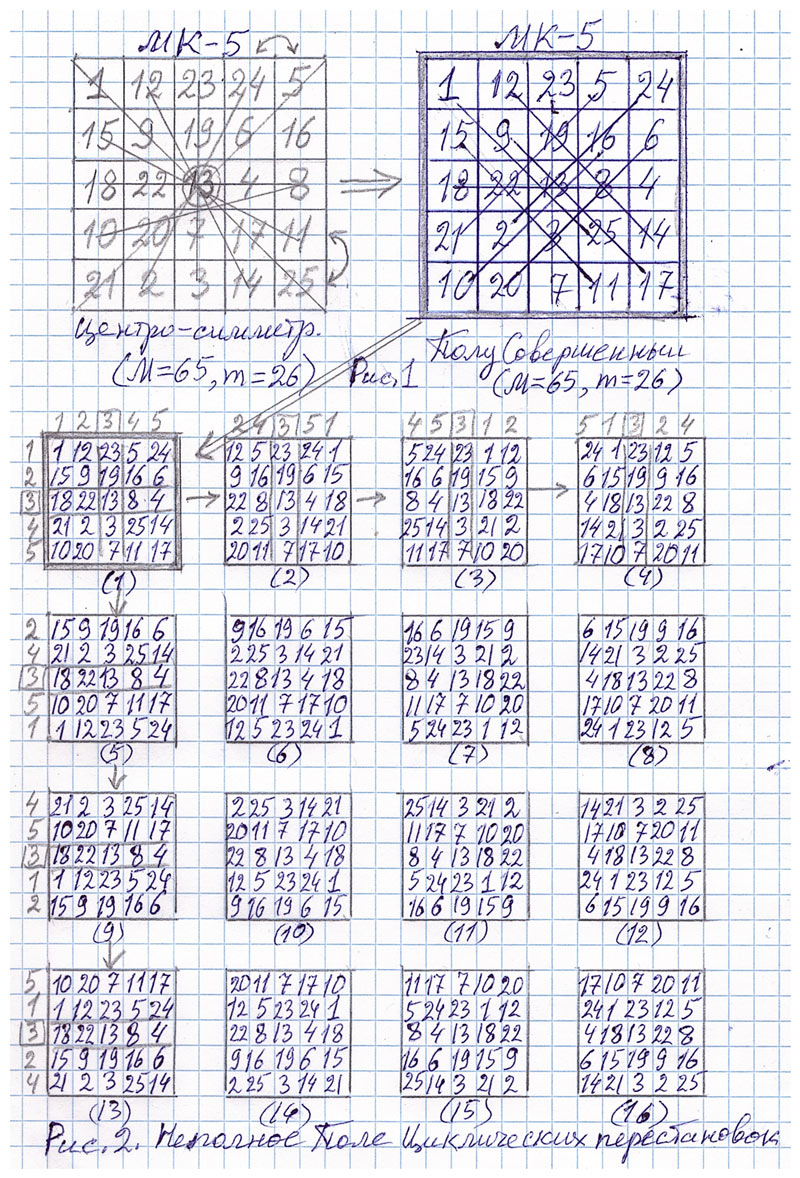 МК-5 МК-5
1 12 23 24 5
15 9 19 6 16
18 22 13 4 8
10 20 7 17 11
21 2 3 14 25
1 12 23 5 24
15 9 19 16 6
18 22 13 8 4
21 2 3 25 14
10 20 7 11 17
Центро-симметр.
(М=65, m=26)
Рис. 1
ПолуСовершенный
(М=65, m=26)
1 2 3 4 5
1 1 12 23 5 24
2 15 9 19 16 6
3 18 22 13 8 4
4 21 2 3 25 14
5 10 20 7 11 17
(1)
2 4 3 5 1
12 5 23 24 1
9 16 19 6 15
22 8 13 4 18
2 25 3 14 21
20 11 7 17 10
(2)
4 5 3 1 2
5 24 23 1 12
16 6 19 15 9
8 4 13 18 22
25 14 3 21 2
11 17 7 10 20
(3)
5 1 3 2 4
24 1 23 12 5
6 15 19 9 16
4 18 13 22 8
14 21 3 2 25
17 10 7 20 11
(4)
2 15 9 19 16 6
4 21 2 3 25 14
3 18 22 13 8 4
5 10 20 7 11 17
1 1 12 23 5 24
(5)
9 16 19 6 15
2 25 3 14 21
22 8 13 4 18
20 11 7 17 10
12 5 23 24 1
(6)
16 6 19 15 9
23 14 3 21 2
8 4 13 18 22
11 17 7 10 20
5 24 23 1 12
(7)
6 15 19 9 16
14 21 3 2 25
4 18 13 22 8
17 10 7 20 11
24 1 23 12 5
(8)
4 21 2 3 25 14
5 10 20 7 11 17
3 18 22 13 8 4
1 1 12 23 5 24
2 15 9 19 16 6
(9)
2 25 3 14 21
20 11 7 17 10
22 8 13 4 18
12 5 23 24 1
9 16 19 6 15
(10)
25 14 3 21 2
11 17 7 10 20
8 4 13 18 22
5 24 23 1 12
16 6 19 15 9
(11)
14 21 3 2 25
17 10 7 20 11
4 18 13 22 8
24 1 23 12 5
6 15 19 9 16
(12)
5 10 20 7 11 17
1 1 12 23 5 24
3 18 22 13 8 4
2 15 9 19 16 6
4 21 2 3 25 14
(13)
20 11 7 17 10
12 5 23 24 1
22 8 13 4 18
9 16 19 6 15
2 25 3 14 21
(14)
11 17 7 10 20
5 24 23 1 12
8 4 13 18 22
16 6 19 15 9
25 14 3 21 2
(15)
17 10 7 20 11
24 1 23 12 5
4 18 13 22 8
6 15 19 9 16
14 21 3 2 25
(16)
Рис. 2. Неполное Поле Циклических перестановок